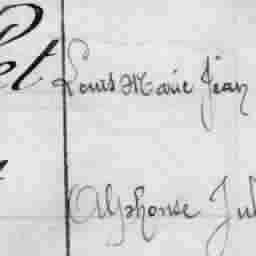 et Louis Marie Jean
Alphonse Jul